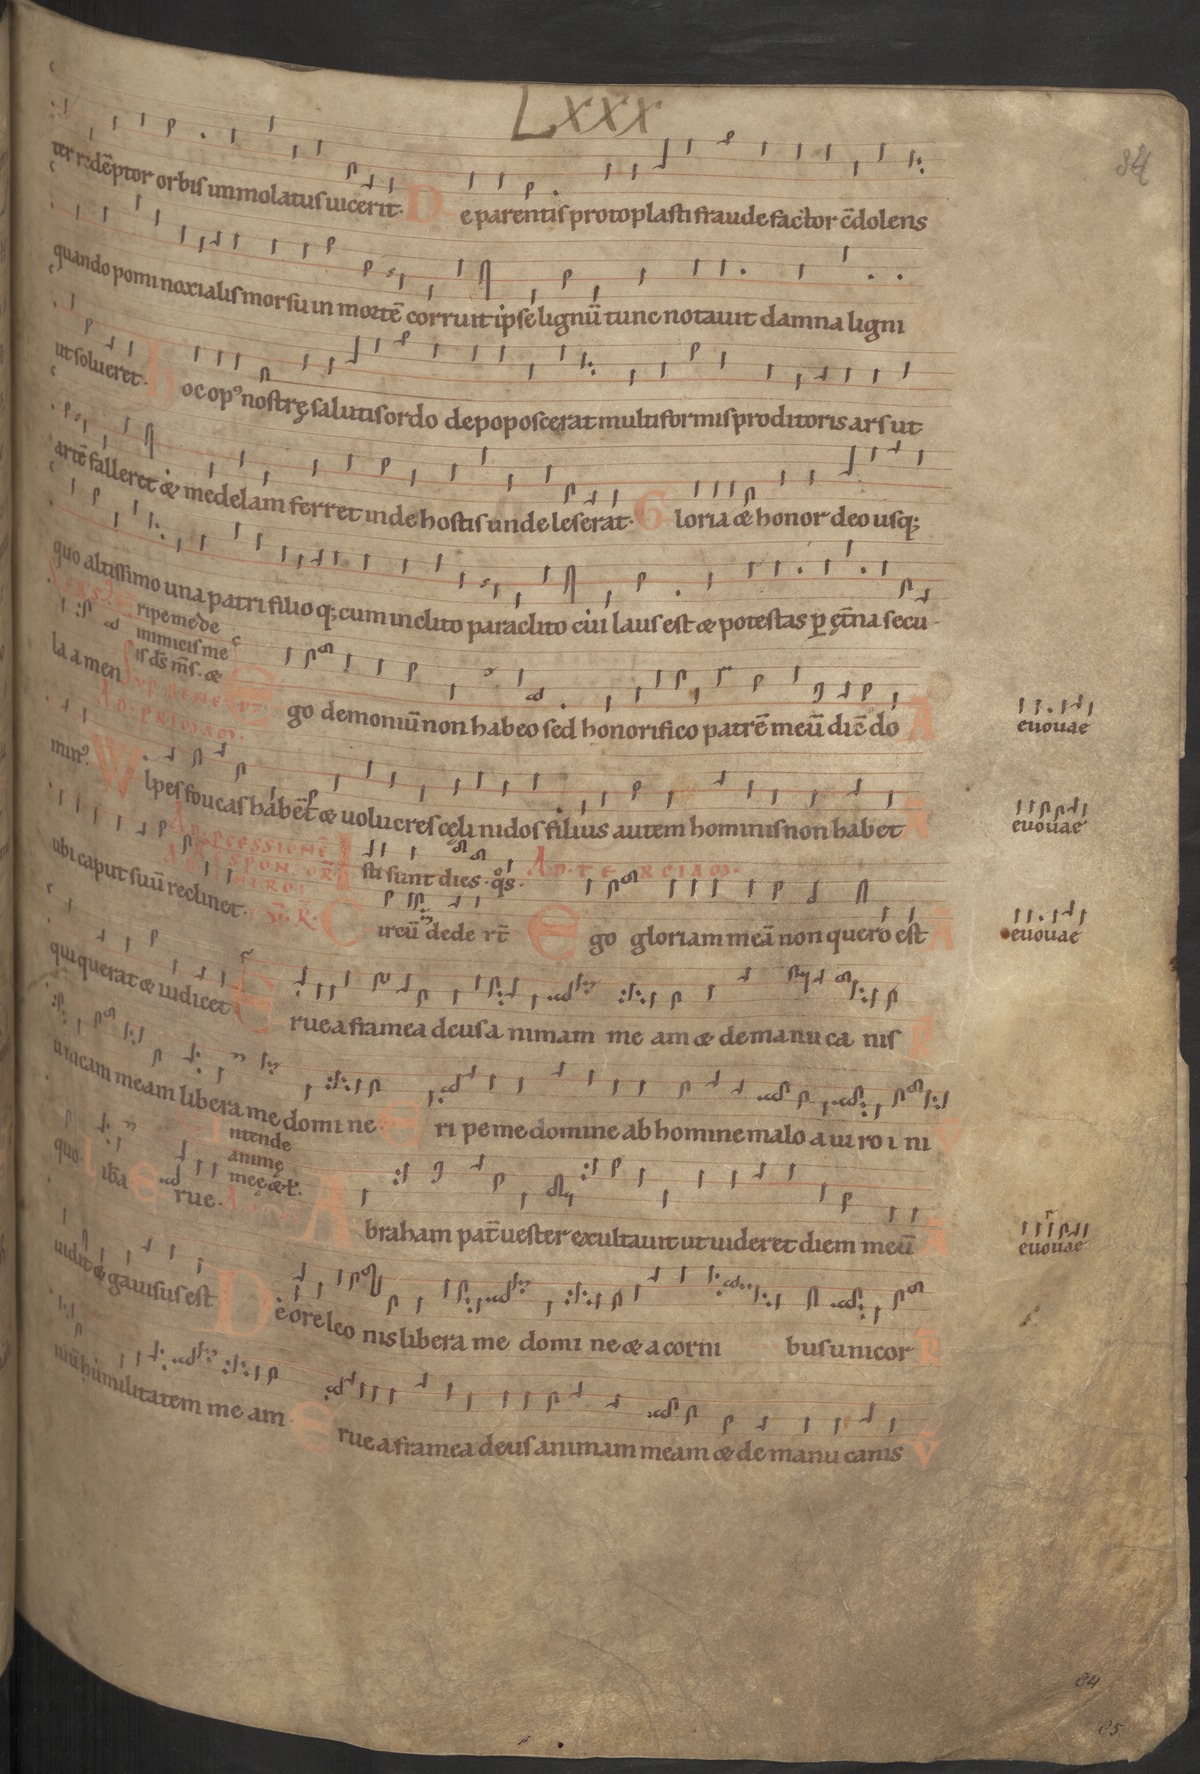 Lxxx
84
ter redēptor orbis immolatus uicerit. De parentis protoplasti fraude factor c̄dolens
quando pomi noxialis morsu in mortē corruit ipse lignū tunc notauit damna ligni
ut solueret. hoc opꝰ nostrę salutis ordo depoposcerat multiformis proditoris ars ut
artē falleret & medelam ferret inde hostis unde leserat. Gloria & honor deo usq;
quo altissimo una patri filio q; cum inclito paraclito cui laus est & potestas p̲ ęt̄na secu-
Eripe me de
inimicis me
is d̄s m̄s. &
la amen
Ego demoniū non habeo sed honorifico patrē meū dic̄ do A
euouae
AD PRIMAM.
minꝰ. Wlpes foueas habēt & uolucres cęli nidos filius autem hominis non habet A
euouae
ubi caput suū reclinet. Isti sunt dies. q̊s. AD TERCIAM.
Circū dede rt̄ Ego gloriam meā non quero est A
euouae
qui querat & iudicet Erue a framea deus animam me am & de manu ca nis R
unicam meam libera me domi ne Eri pe me domine ab homine malo a uiro i ni V
Intende
animę
meę & l.
quo lib̄a Erue. Abraham pat̄ uester exultauit ut uideret diem meū A
euouae
uidit & gauisus est De ore leo nis libera me domi ne & a corni bus unicor R
niū humilitatem me am Erue a framea deus animam meam & de manu canis V
84
85